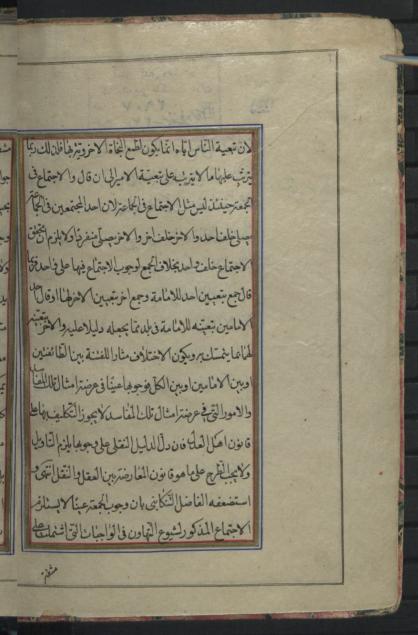 لان تبعية الناس اياه انما يكون لطمع النجاة الاخروية فانها فان لك ربما
يترتب عليها ما لا يترتب على تبعية الامير الى ان قال والاجتماع في
الجمعة حينئذ ليس مثل الاجتماع في الجماعة لان احد المجتمعين في الجماعة
يصلى خلف احد والاخر خلف اخر والاخر يصلى منفردا ولا يلزم ان يتحقق
الاجتماع خلف واحد بخلاف الجمع لوجوب الاجتماع فيها على واحد
قال جمع بتعيين احد للامامة وجمع اخر بتعيين الاخر لها او قال احد
الامامين بتعينه للامامة في بلد بما يجعله دليلا عليه والاخر بتعينه
لها بما يتمسك به ويكون الاختلاف مثارا للفتنة بين الطائفتين
او بين الامامين او بين الكل فوجوبها عينا في عرضة امثال تلك المفاسد
والامور التي في عرضة امثال تلك المفاسد لا يجوز التكليف بها على
قانون اهل العدل فان دل الدليل النقلى على وجوبها يلزم التاويل
ولا يجب الطرح على ما هو قانون المعارضة بين العقل والنقل انتهى و
استضعفه الفاضل التنكابنى بان وجوب الجمعة عينا لا يستلزم
الاجتماع المذكور لشيوع التهاون في الواجبات التي اشتملت على